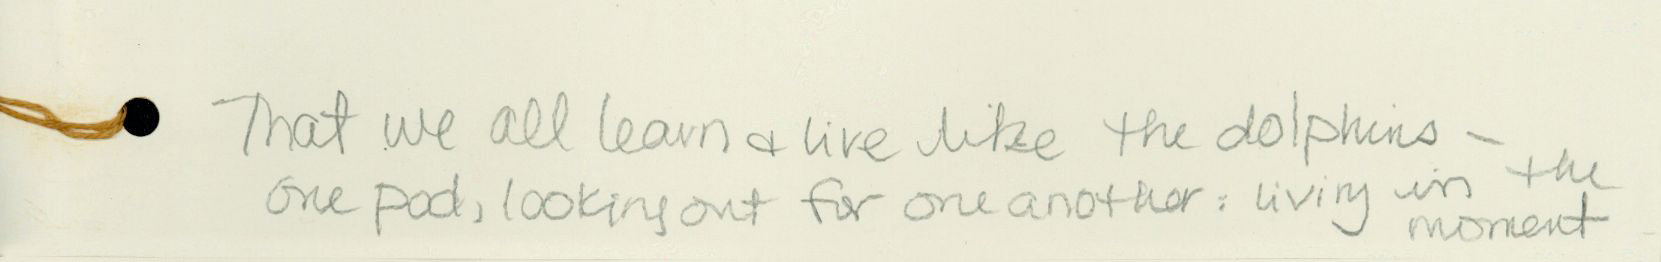 That we all learn & live like the dolphins -
one pod, looking out for one another: living in the
moment